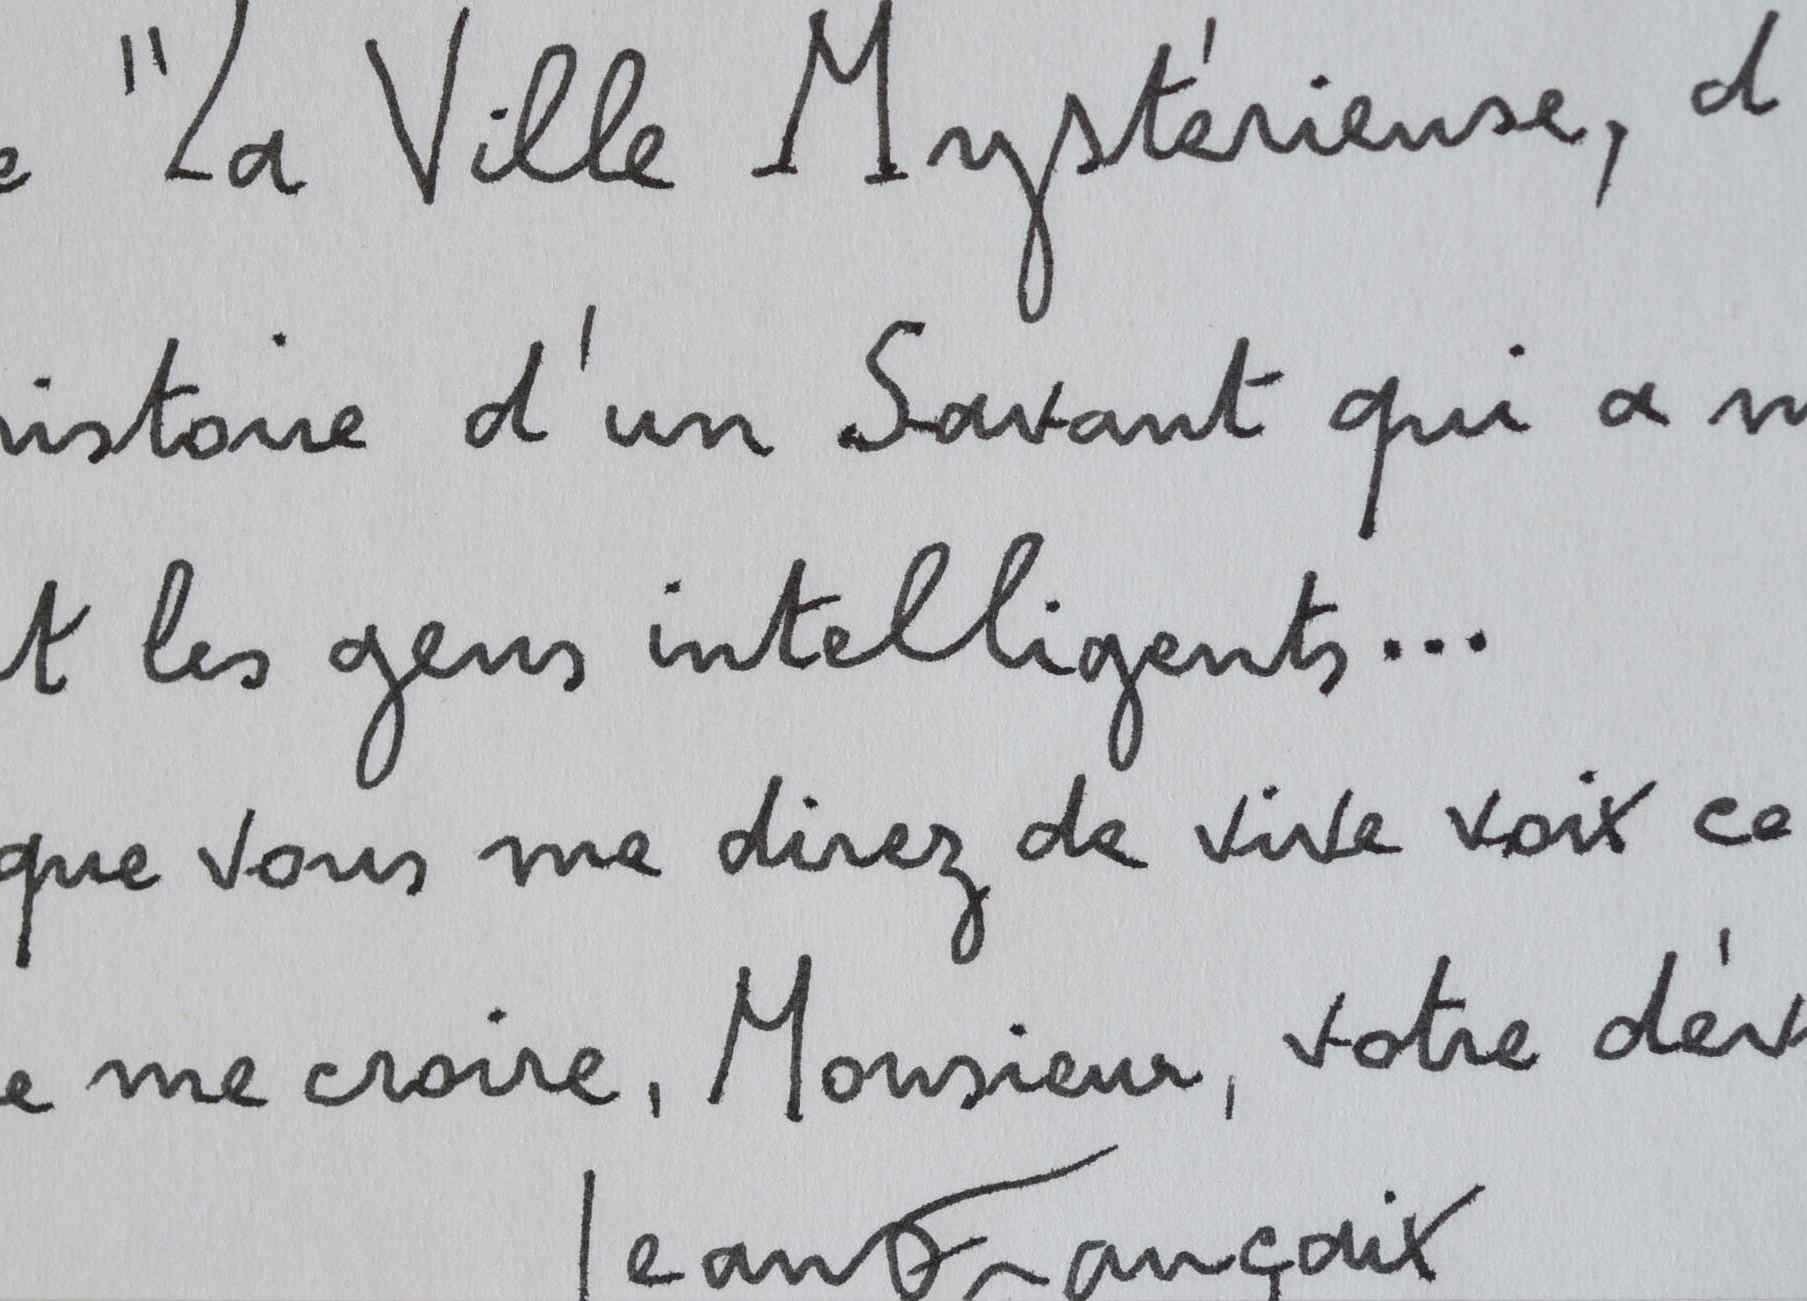 e "La Ville Mystérieuse, d
histoire d'un Savant qui a
t les gens intelligents...
que vous me direz de vive voix ce
e me croire, Monsieur, votre dév
Jean Françaix